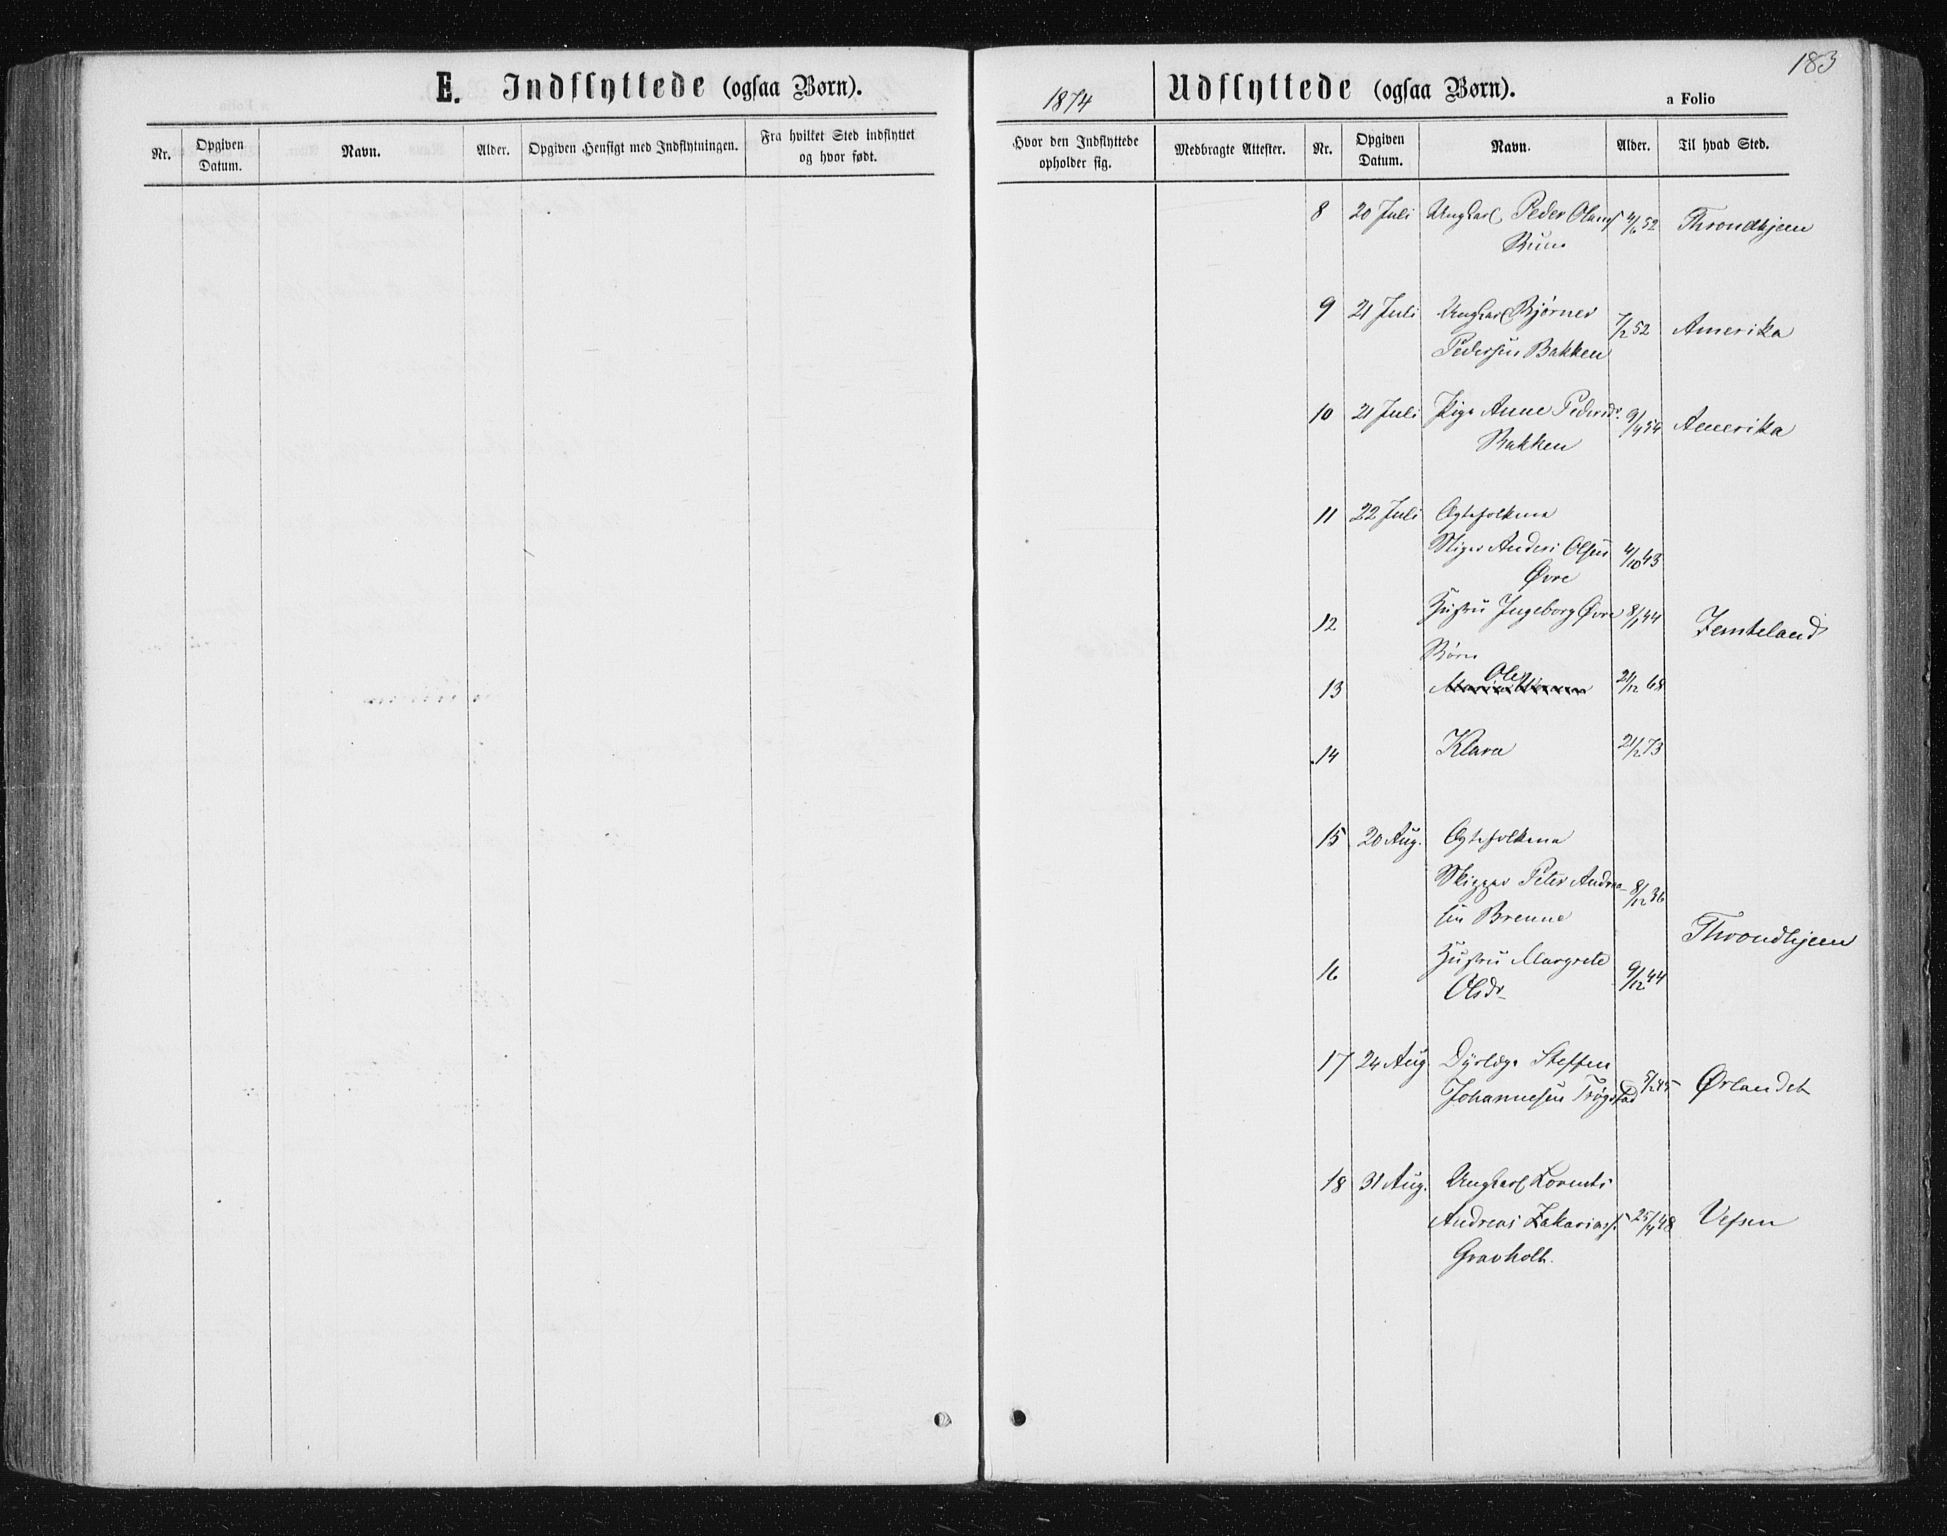 183
E. Indflyttede (ogsaa Børn).
1874
Udflyttede (ogsaa Børn).
a Folio
Nr.
Opgiven Datum.
Navn.
Alder.
Opgiven Hensigt med Indflytningen.
Fra hvilket Sted indflyttet og hvor født.
Hvor den Indflyttede opholder sig.
Medbragte Attester.
Nr.
Opgiven Datum.
Navn.
Alder.
Til hvad Sted.
8 20 Juli Ungkarl Peder 4/6 52 Throndhjem
9 21 Juli Ungkarl Bjørner
Pedersen Bakken 7/2 52 Amerika
10 21 Juli Pige Anne Pedersdr. 9/4 54 Amerika
Bakken
11 22 Juli Ægtefolkene
Anders Olsen 4/10 43
Øvre
12 Hustru Ingeborg Øvre 8/1 44 Jemteland
Børn
13 Ole 21/12 68
14 Klara 21/2 73
15 20 Aug. Ægtefolkene
Skipper Peter Andrea- 8/12 36
sen Brenne
Throndhjem
16 Hustru Margrete 9/12 44
Olsdr
17 24 Aug Dyrlæge Steffen
Johannesen 5/2 45 Ørlandet
18 31 Aug. Ungkarl Lorents
Andreas Zakariass. 25/4 48 Vefsen
Gravholt.